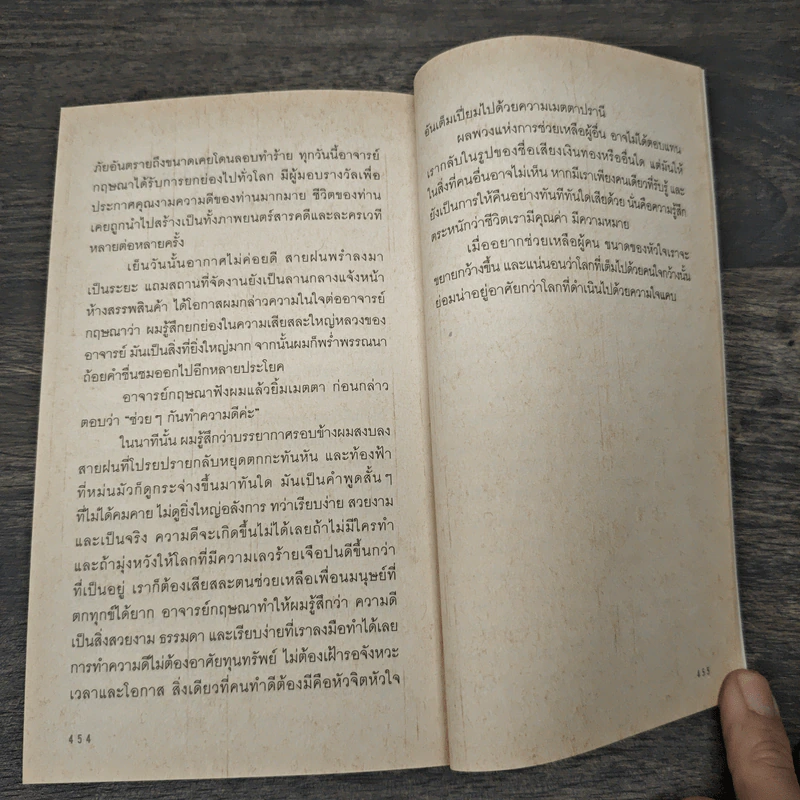 ภัยอันตรายถึงขนาดเคยโดนลอบทำร้าย ทุกวันนี้อาจารย์
กฤษณาได้รับการยกย่องไปทั่วโลก มีผู้มอบรางวัลเพื่อ
ประกาศคุณงามความดีของท่านมากมาย ชีวิตของท่าน
เคยถูกนำไปสร้างเป็นทั้งภาพยนตร์สารคดีและละครเวที
หลายต่อหลายครั้ง
เย็นวันนั้นอากาศไม่ค่อยดี สายฝนพรำลงมา
เป็นระยะ แถมสถานที่จัดงานยังเป็นลานกลางแจ้งหน้า
ห้างสรรพสินค้า ได้โอกาสผมกล่าวความในใจต่ออาจารย์
กฤษณาว่า ผมรู้สึกยกย่องในความเสียสละใหญ่หลวงของ
อาจารย์ มันเป็นสิ่งที่ยิ่งใหญ่มาก จากนั้นผมก็พร่ำพรรณนา
ถ้อยคำชื่นชมออกไปอีกหลายประโยค
อาจารย์กฤษณาฟังผมแล้วยิ้มเมตตา ก่อนกล่าว
ตอบว่า “ช่วยๆ กันทำความดีค่ะ”
ในนาทีนั้น ผมรู้สึกว่าบรรยากาศรอบข้างผมสงบลง
สายฝนที่โปรยปรายกลับหยุดตกกะทันหัน และท้องฟ้า
ที่หม่นมัวก็ดูกระจ่างขึ้นมาทันใด มันเป็นคำพูดสั้นๆ
ที่ไม่ได้คมคาย ไม่ดูยิ่งใหญ่อลังการ ทว่าเรียบง่าย สวยงาม
และเป็นจริง ความดีจะเกิดขึ้นไม่ได้เลยถ้าไม่มีใครทำ
และถ้ามุ่งหวังให้โลกที่มีความเลวร้ายเจือปนดีขึ้นกว่า
ที่เป็นอยู่ เราก็ต้องเสียสละตนช่วยเหลือเพื่อนมนุษย์ที่
ตกทุกข์ได้ยาก อาจารย์กฤษณาทำให้ผมรู้สึกว่า ความดี
เป็นสิ่งสวยงาม ธรรมดา และเรียบง่ายที่เราลงมือทำได้เลย
การทำความดีไม่ต้องอาศัยทุนทรัพย์ ไม่ต้องเฝ้ารอจังหวะ
เวลาและโอกาส สิ่งเดียวที่คนทำดีต้องมีคือหัวจิตหัวใจ
454
อันเต็มเปี่ยมไปด้วยความเมตตาปรานี
ผลพวงแห่งการช่วยเหลือผู้อื่น อาจไม่ได้ตอบแทน
เรากลับในรูปของชื่อเสียงเงินทองหรืออื่นใด แต่มันให้
ในสิ่งที่คนอื่นอาจไม่เห็น หากมีเราเพียงคนเดียวที่รับรู้ และ
ยังเป็นการให้คืนอย่างทันทีทันใดเสียด้วย นั่นคือความรู้สึก
ตระหนักว่าชีวิตเรามีคุณค่า มีความหมาย
เมื่ออยากช่วยเหลือผู้คน ขนาดของหัวใจเราจะ
ขยายกว้างขึ้น และแน่นอนว่าโลกที่เต็มไปด้วยคนใจกว้างนั้น
ย่อมน่าอยู่อาศัยกว่าโลกที่ดำเนินไปด้วยความใจแคบ
455